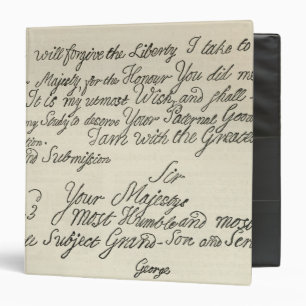 will forgive the Liberty I take to
Majesty, for the Honour You did me
It is my utmost Wish, and shall
my Study to deserve Your Paternal Good
tion. I am with the Greates
and Submission
Sir
Your Majestys
3 most Humble and most
e Subject Grand-Son and Ser
George